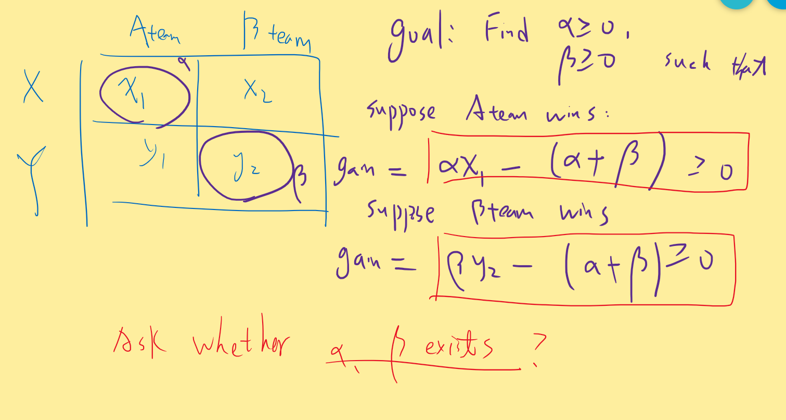 A team β team
X x₁ α x₂
Y y₁ y₂ β
goal: Find α ≥ 0,
β ≥ 0 such that
suppose A team wins:
gan = αx₁ - (α + β) ≥ 0
suppose β team wins
gan = βy₂ - (α + β) ≥ 0
Ask whether α, β exists ?